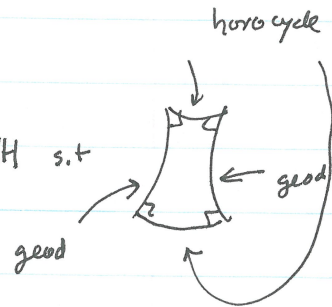 horocycle
H s.t
geod
geod